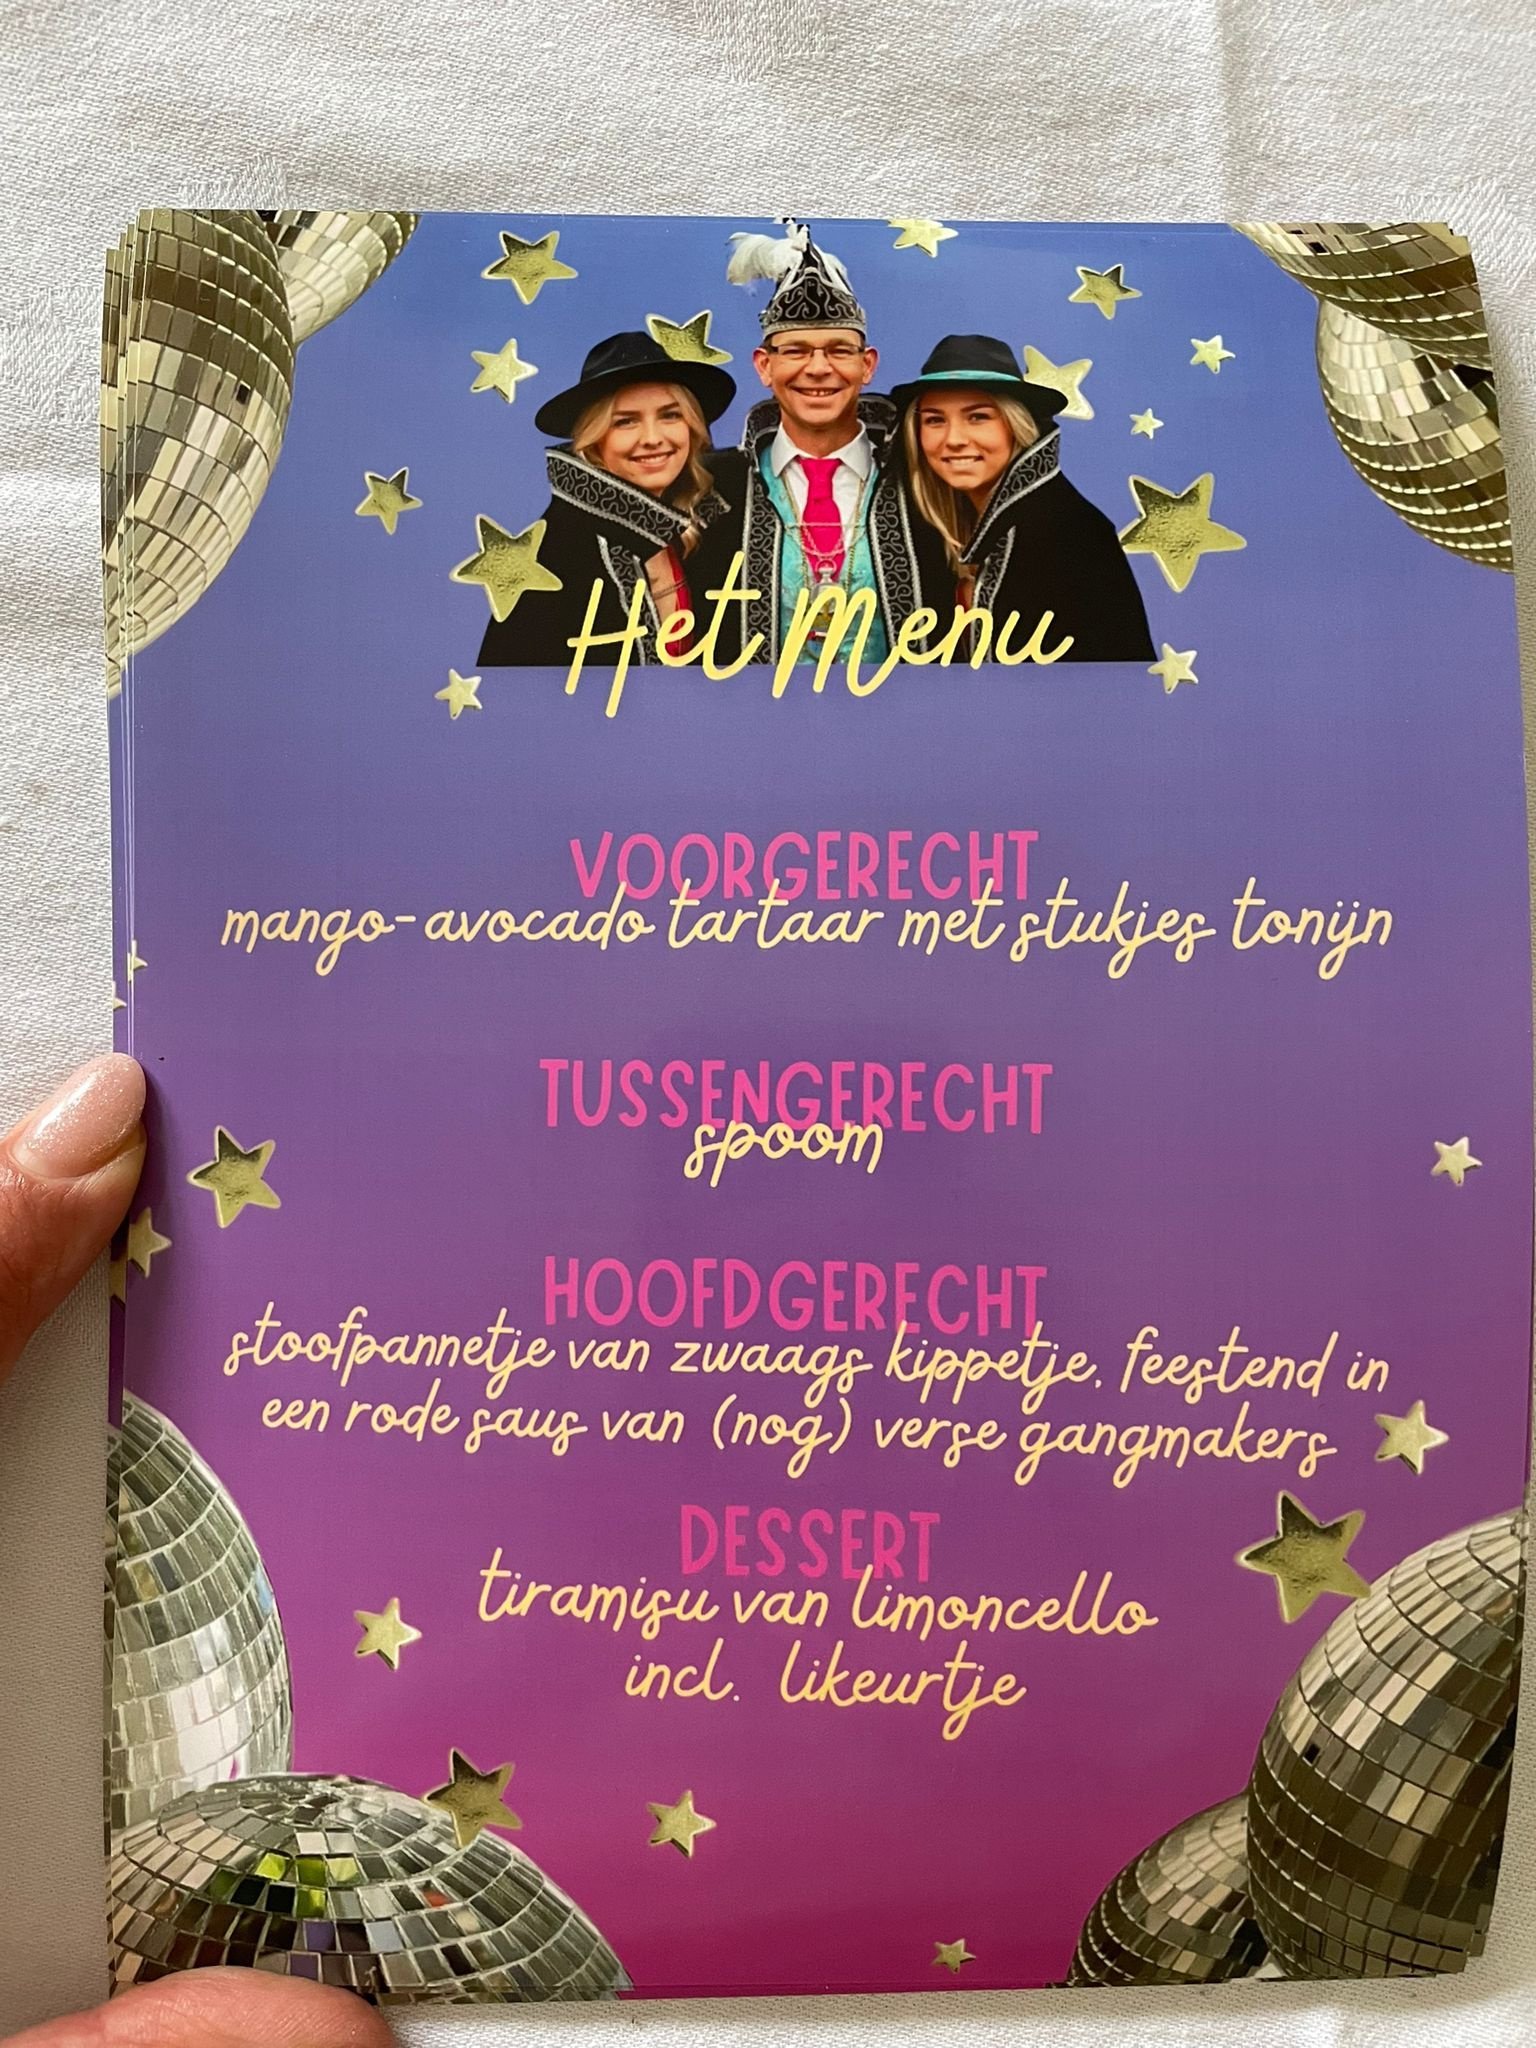 Het Menu
VOORGERECHT
mango-avocado tartaar met stukjes tonijn
TUSSENGERECHT
spoom
HOOFDGERECHT
stoofpannetje van zwaags kippetje, feestend in
een rode saus van (nog) verse gangmakers
DESSERT
tiramisu van limoncello
incl. likeurtje